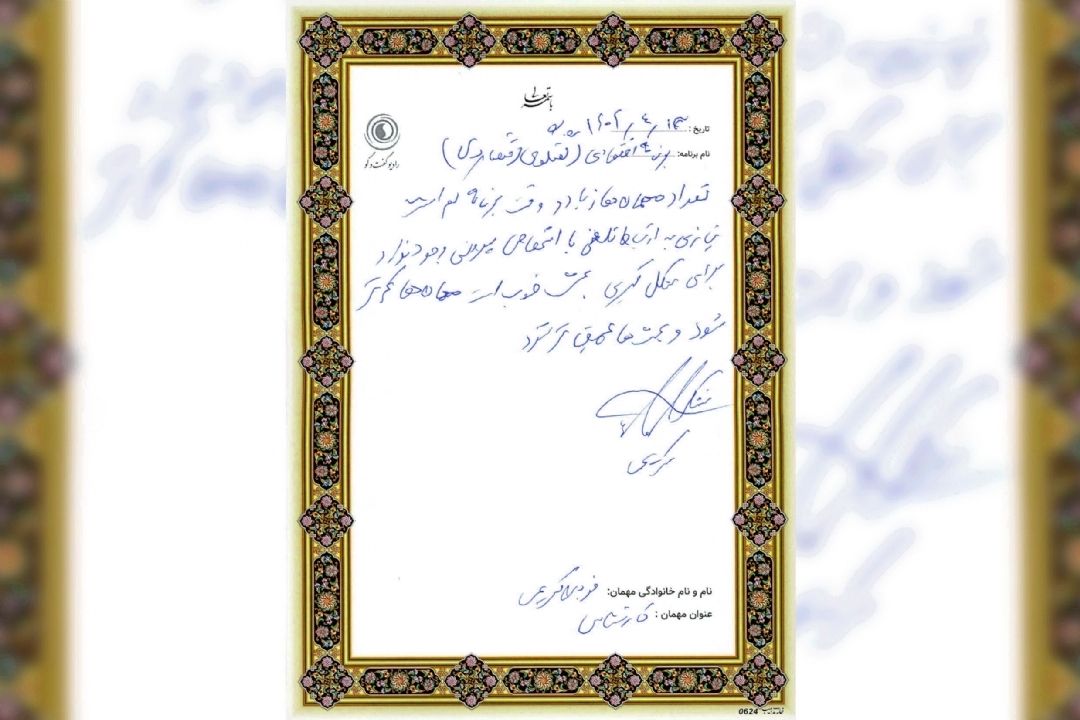 باسمه تعالی
رادیو گفت و گو
تاریخ: ۱۴۰۲/۴/۱۳
نام برنامه: برنامه اقتصادی (گفتگوی اقتصادی)
تعداد مهمان‌ها زیاد و وقت برنامه کم است
نیازی به ارتباط تلفنی با اشخاص بیرونی وجود ندارد
برای شکل گیری بحث خوب است مهمان‌ها کم‌تر
شود و بحث‌ها عمیق تر گردد
کریمی
نام و نام خانوادگی مهمان: کریمی
عنوان مهمان: کارشناس
0624